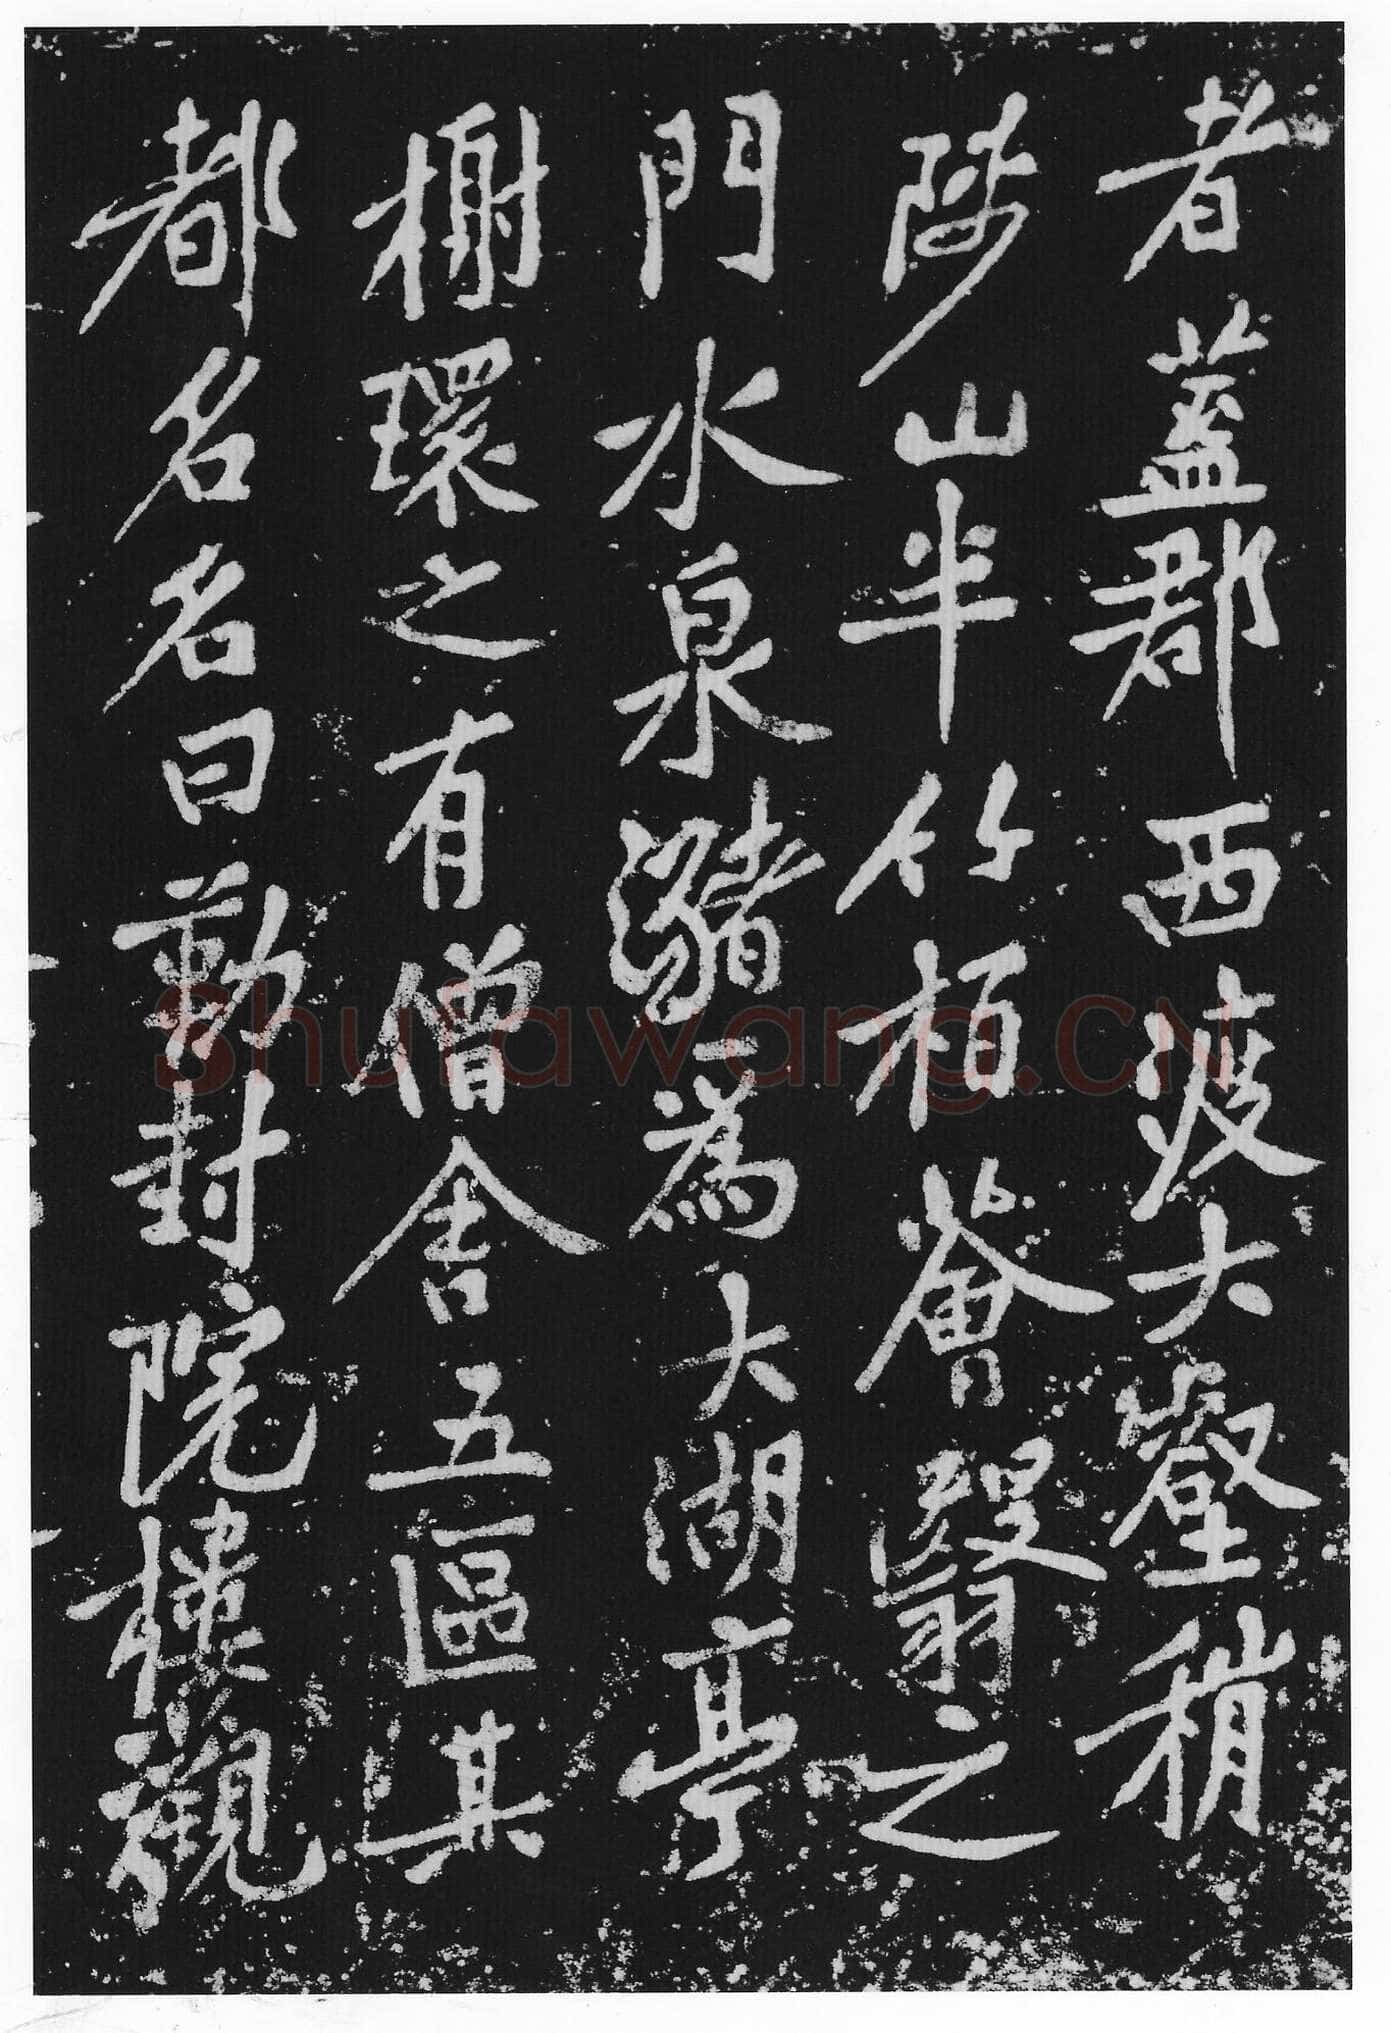 者蓋郡西渡大壑稍
陟山半竹栢薈翳之
門水泉瀦為大湖亭
榭環之有僧舍五區其
都名名曰勤封院樓觀
Shufawang.CN